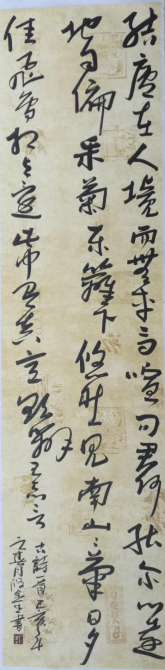 結廬在人境而無車馬喧問君何能尔心遠
地自偏采菊东籬下悠然見南山々氣日夕
佳飛鳥相與還此中有真意欲辨已忘言
古詩一首己亥年